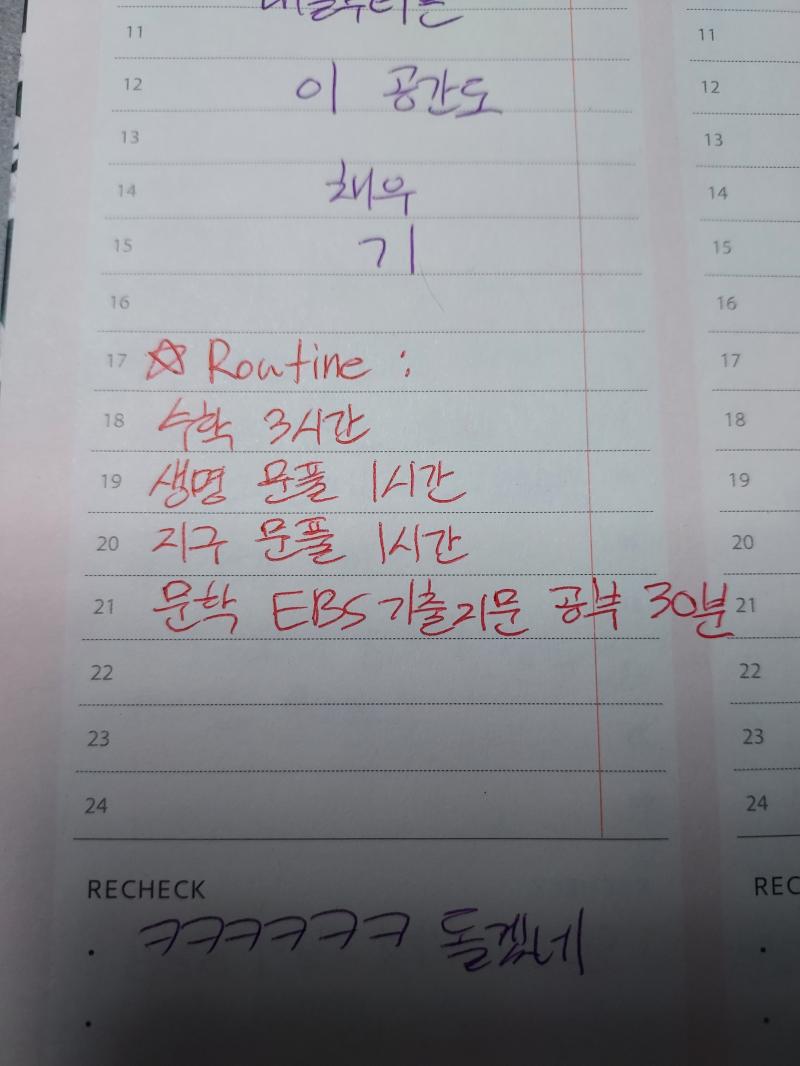 내일부터는
11
12 이 공간도
13
14 채우
15 기
16
17 ☆ Routine :
18 수학 3시간
19 생명 문풀 1시간
20 지구 문풀 1시간
21 문학 EBS 기출지문 공부 30분
22
23
24
RECHECK
· ㅋㅋㅋㅋㅋㅋ 돌겠네
·
11
12
13
14
15
16
17
18
19
20
21
22
23
24
REC
·
·